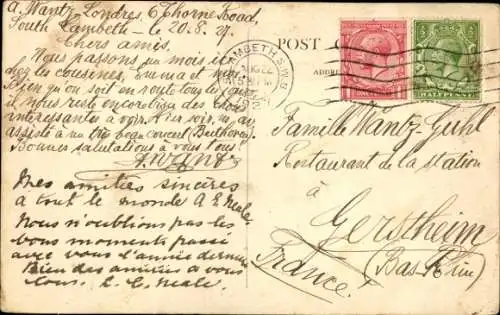 A. Wantz, Londres, 6 Thorne Road,
South Lambeth — le 20.8.27.
Chers amis,
Nous passons un mois ici
chez les cousines, Emma et moi.
Bien qu'on soit en route tous les jours
il nous reste encore bien des choses
intéressantes à voir. Hier soir, nous avons
assisté à un très beau concert (Beethoven).
Bonnes salutations à vous tous!
A. Wantz
Mes amitiés sincères
a tout le monde A E Neale.
Nous n'oublions pas les
bons moments passé
avec vous l'année dernière
Bien des amitiés a vous
tous. E. C. Neale.
LAMBETH S.W.8
POST
ADDRE
HALFPENNY
Famille Wantz-Guhl
Restaurant de la station
à
Gerstheim
(Bas Rhin)
France.